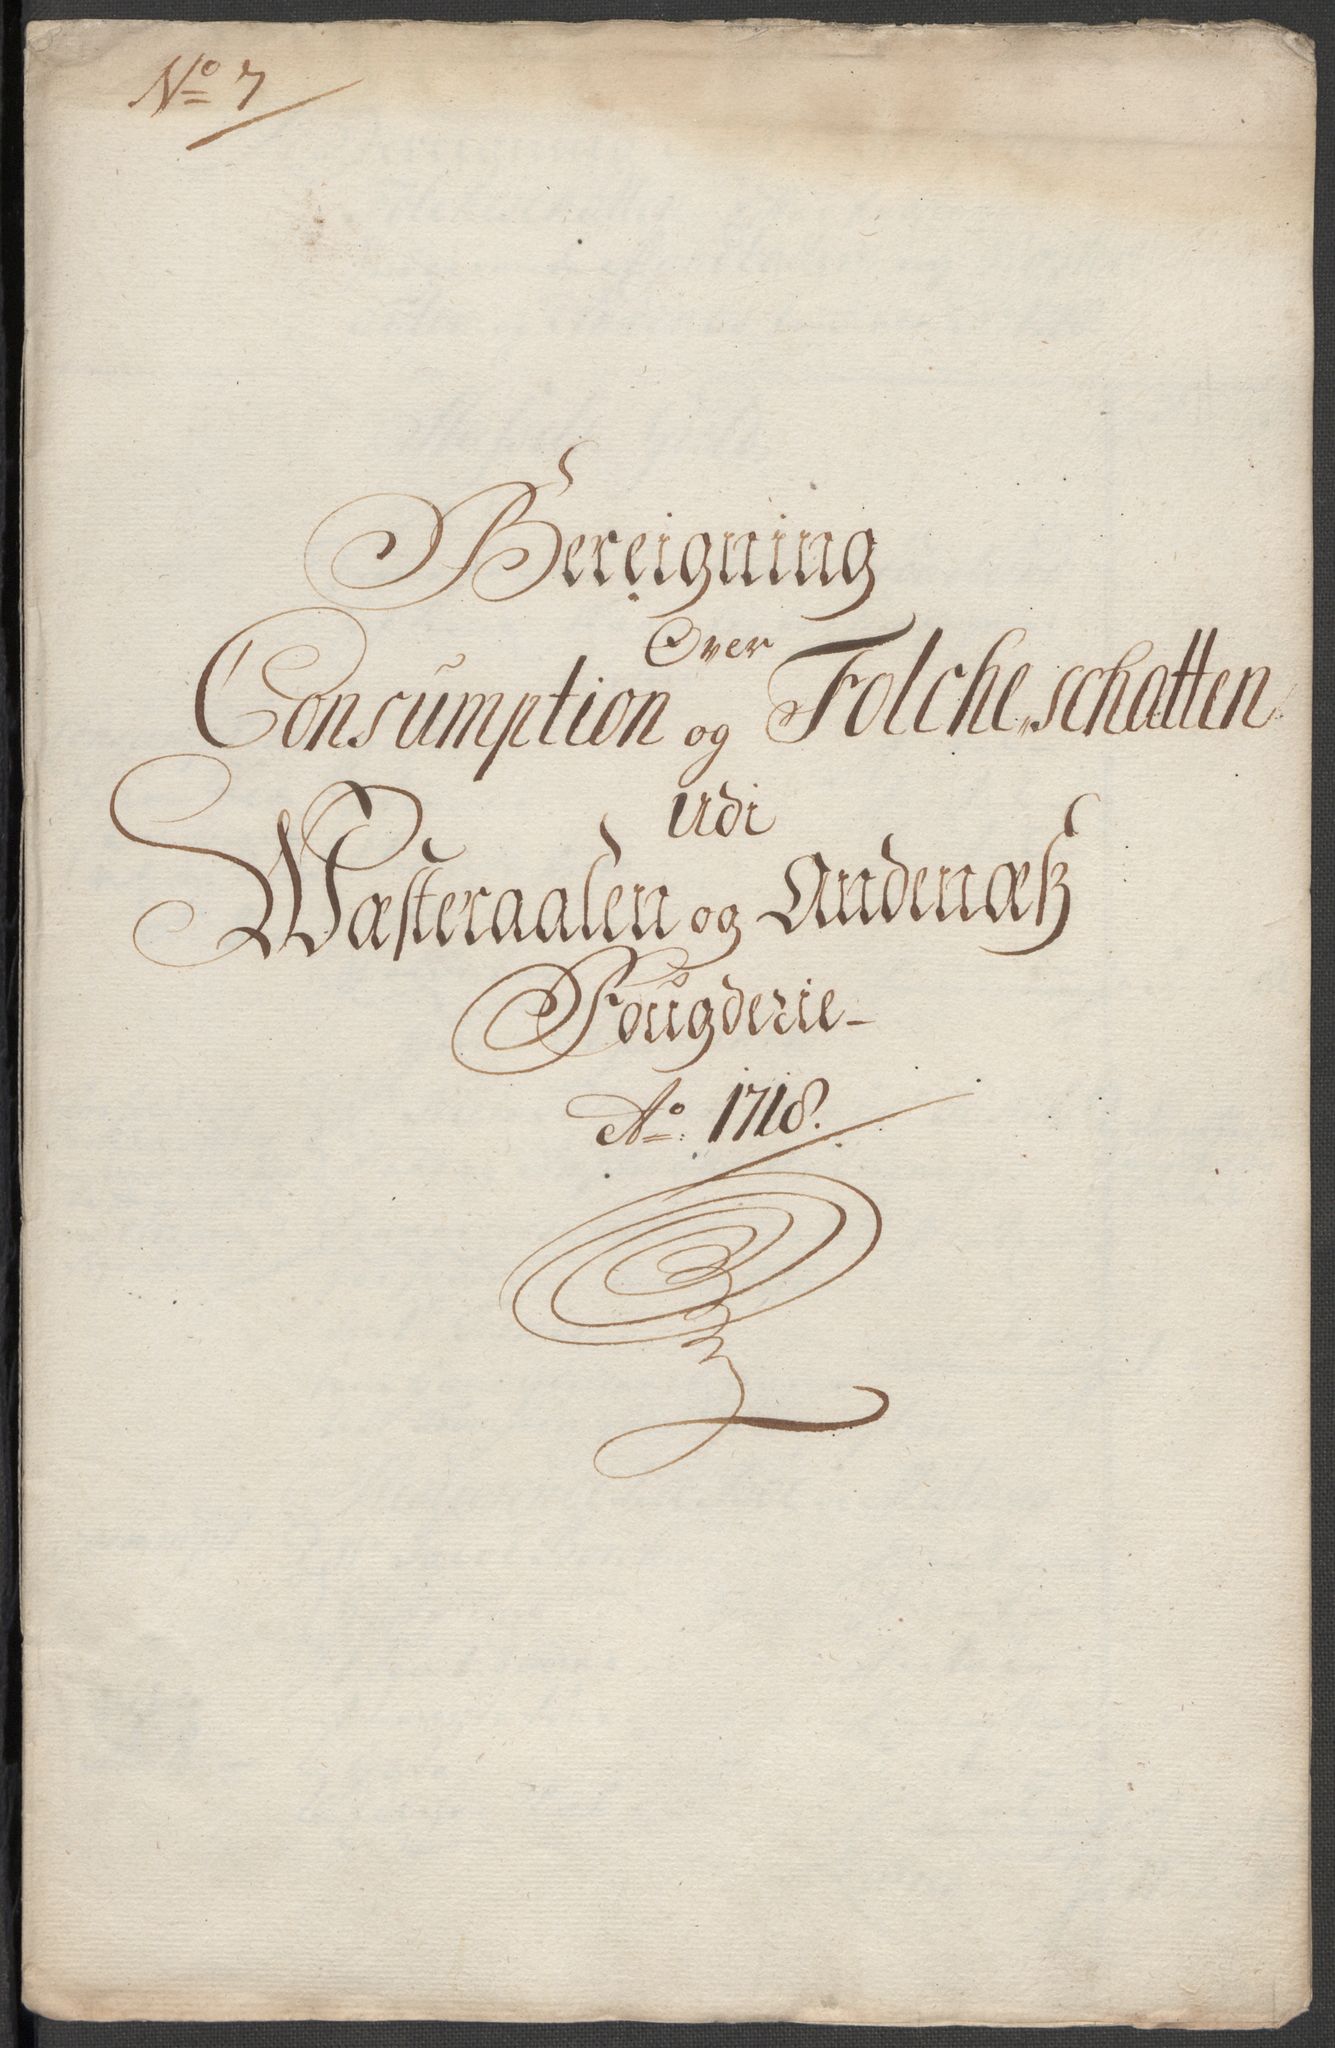 No 7
Bereigning
Over
Consumption og Folche,schatten
udi
Wæsteraalen og Andenæß
Fougderie-
Ao: 1718.